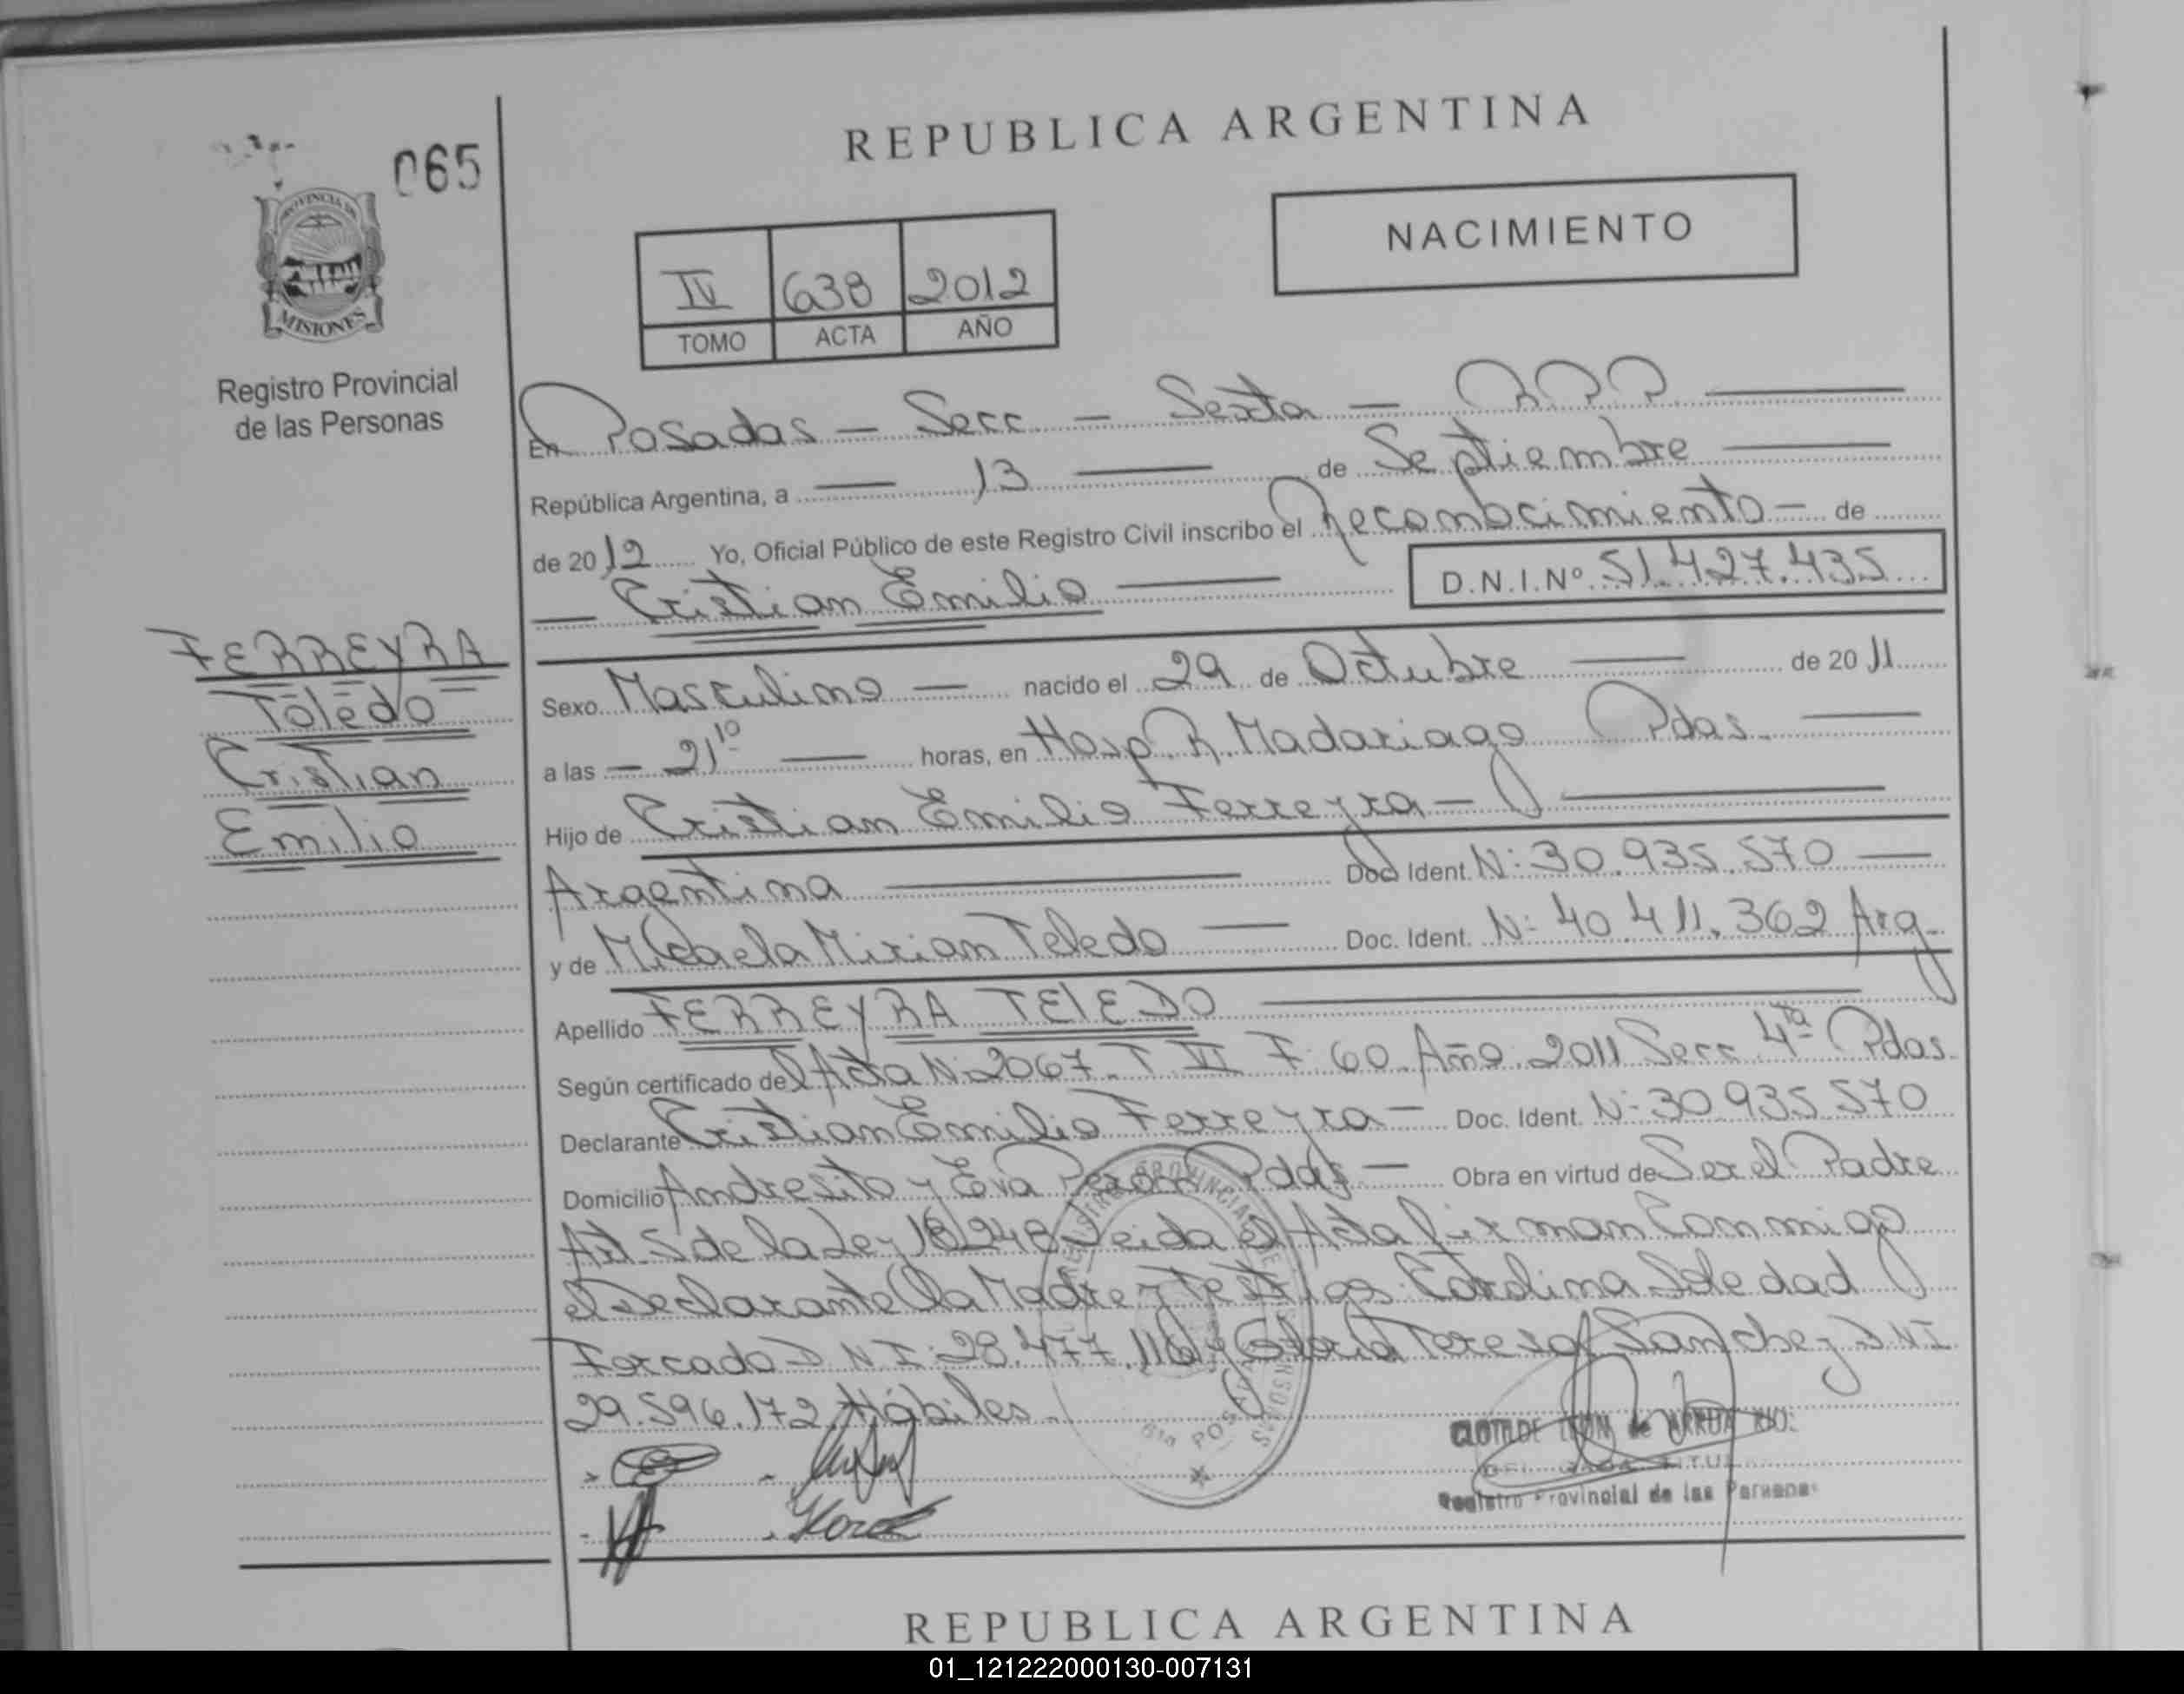 REPUBLICA ARGENTINA
065
NACIMIENTO
PROVINCIA DE
MISIONES
IV 638 2012
TOMO ACTA AÑO
Registro Provincial
de las Personas
En Posadas — Secc — Sexta — RPP
República Argentina, a — 13 — de Septiembre
de 2012 Yo, Oficial Público de este Registro Civil inscribo el Reconocimiento — de
— Cristian Emilio — D.N.I.Nº 51.427.435
FERREYRA
Toledo
Cristian
Emilio
Sexo Masculino — nacido el 29 de Octubre — de 2011
a las — 21¹⁰ — horas, en Hosp R. Madariaga Pdas. —
Hijo de Cristian Emilio Ferreyra —
Argentina — Doc Ident. N: 30.935.570 —
y de Micaela Mirian Teledo — Doc. Ident. N: 40.411.362 Arg.
Apellido FERREYRA TElEDO
Según certificado del Acta N: 2067. T VI F: 60. Año: 2011 Secc 4ta Pdas.
Declarante Cristian Emilio Ferreyra — Doc. Ident. N: 30935.570
Domicilio Andresito y Eva Perón Pdas — Obra en virtud de Ser el Padre
Art. 5 de la Ley 18248 Leida el Acta firman Conmigo
el Declarante la Madre y testigos: Carolina Soledad
Forcado D N I: 28.477.116 y Gloria Teresa Sanchez D.N.I
29.596.172. Hábiles.
6ta POSADAS
CLOTILDE de
Registro Provincial de las Personas
REPUBLICA ARGENTINA
01_121222000130-007131